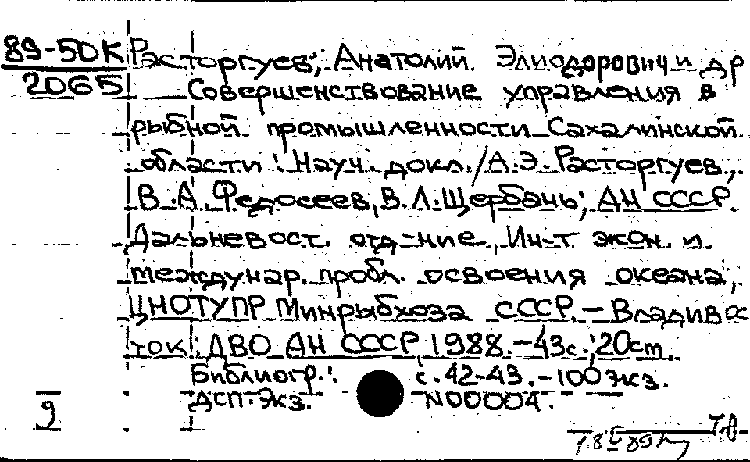 89-50К
2065
Расторгуев, Анатолий Элиодорович и др
Совершенствование управления в
рыбной промышленности Сахалинской
области : Науч. докл. / А.Э. Расторгуев,
В.А. Федосеев, В.Л. Щербань; АН СССР.
Дальневост. отд-ние, Ин-т экон. и
междунар. пробл. освоения океана,
ЦНОТУПР Минрыбхоза СССР. - Владивос
ток : ДВО АН СССР, 1988. - 43с.; 20см.
Библиогр.: с. 42-43. - 100 экз.
ДСП. Экз. N00004.
9